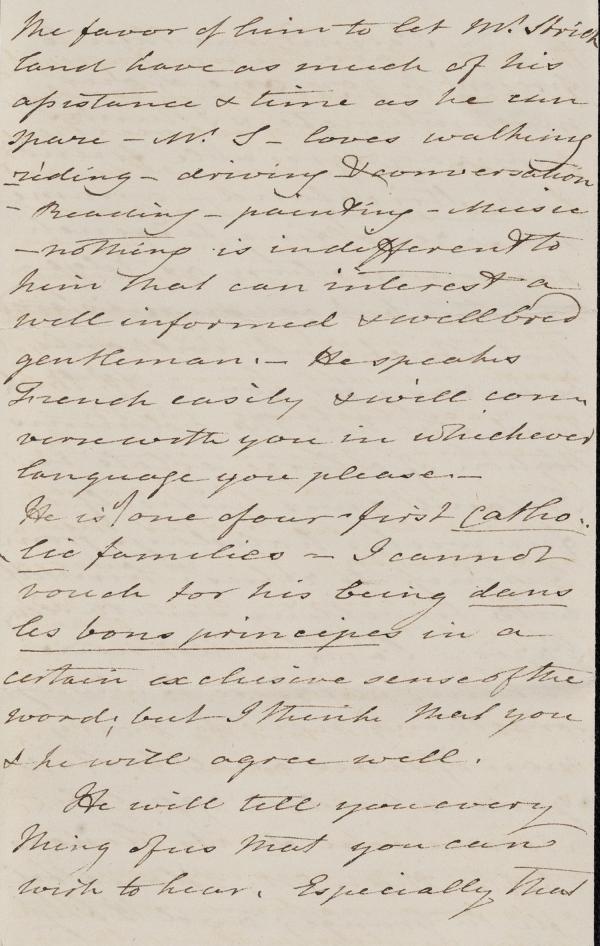 the favor of him to let Mr. Strick
land have as much of his
assistance & time as he can
spare - Mr. S - loves walking
riding - driving & conversation
- Reading - painting - Music
- nothing is indifferent to
him that can interest a
well informed & wellbred
gentleman. - He speaks
French easily & will con
verse with you in whichever
language you please. -
He is of one of our first Catho-
lic families - I cannot
vouch for his being dans
les bons principes in a
certain exclusive sense of the
word; but I think that you
& he will agree well.
He will tell you every
thing of us that you can
wish to hear. Especially that